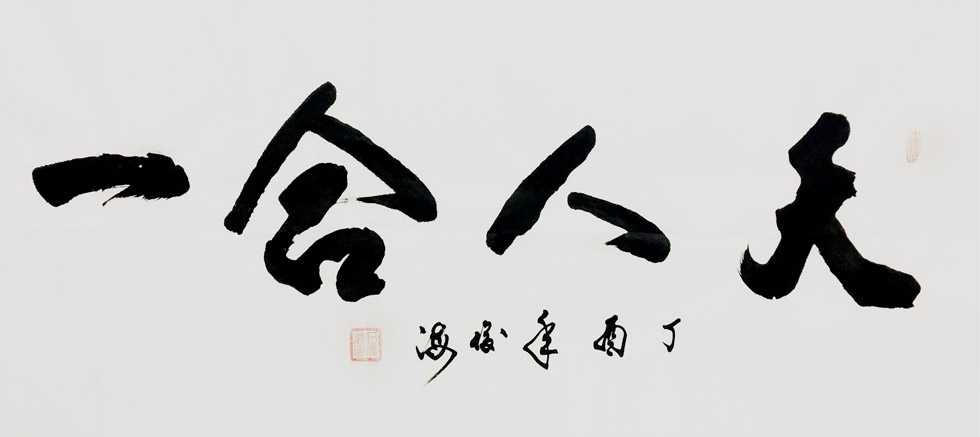 天人合一
丁酉年 海